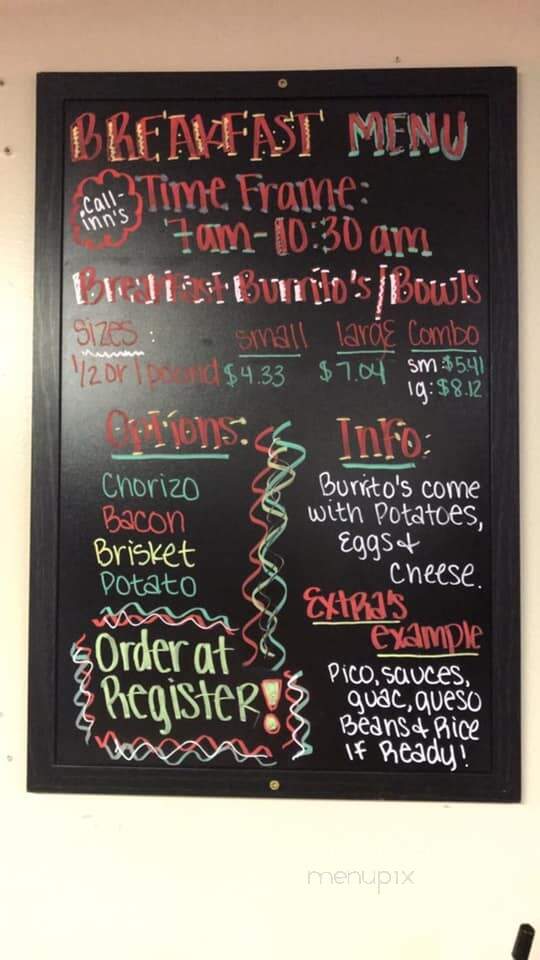 BREAKFAST MENU
Call-
inn's
Time Frame:
7am-10:30 am
Breakfast Burrito's/Bowls
Sizes: small large Combo
1/2 or 1 pound $4.33 $7.04 sm:$5.41
lg:$8.12
Options:
Chorizo
Bacon
Brisket
Potato
Order at
Register!
Info:
Burrito's come
with Potatoes,
Eggs &
Cheese.
Extra's
example
Pico, sauces,
guac, queso
Beans & Rice
If Ready!
menupix